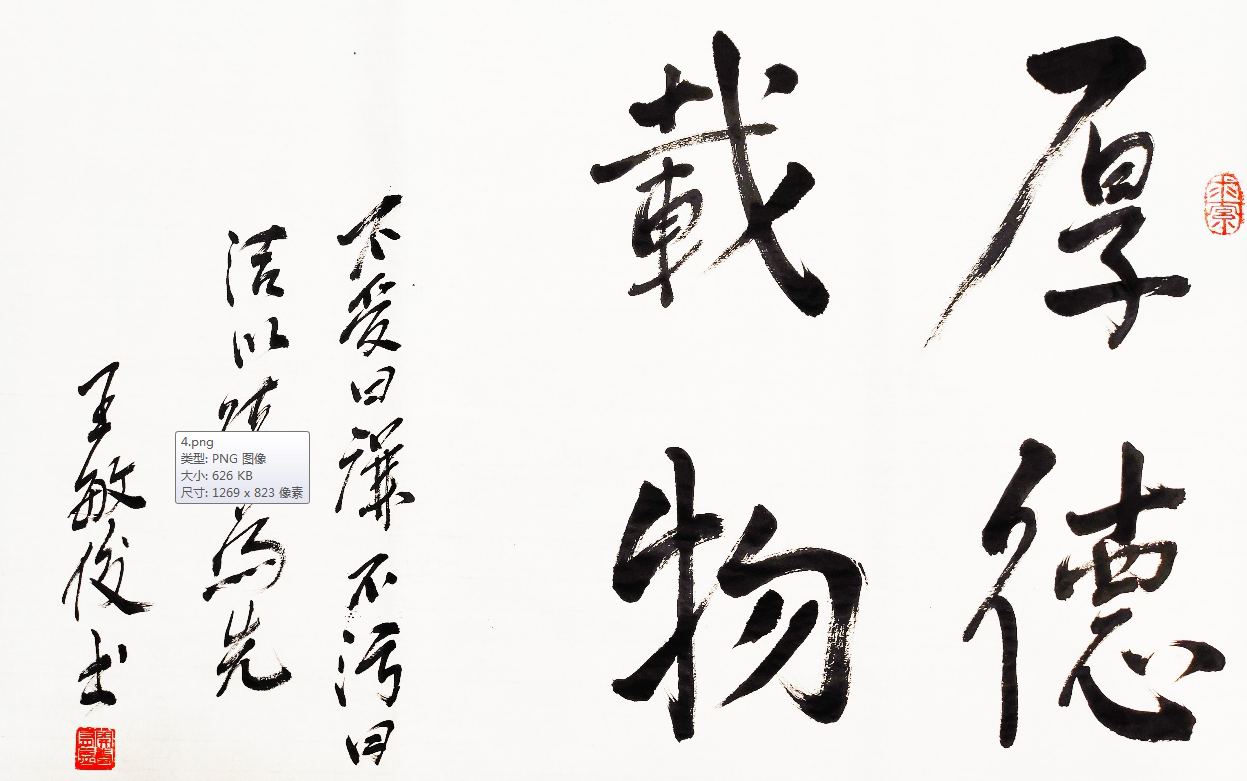 厚德
載物
不爱曰廉不污曰
洁以
為先
王敏俊书
4.png
类型: PNG 图像
大小: 626 KB
尺寸: 1269 x 823 像素